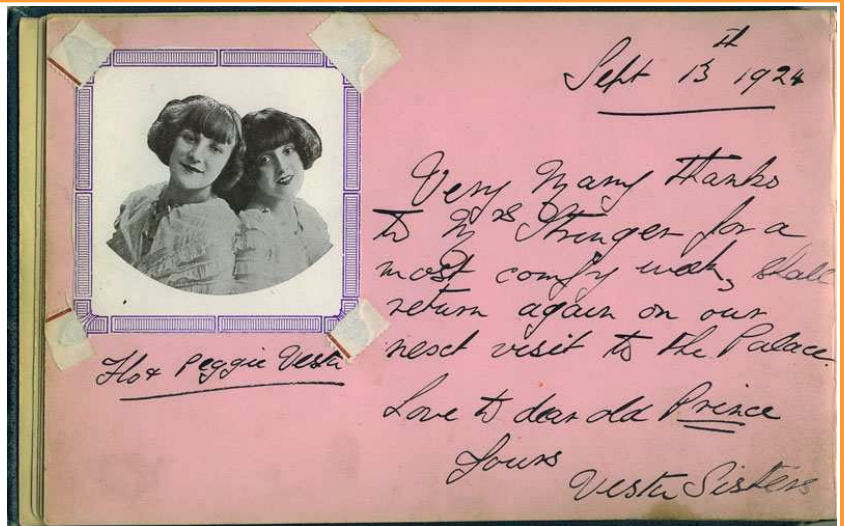 Sept 13th 1924
Very Many Thanks
to Mrs Stringer for a
most comfy week, shall
return again on our
next visit to the Palace.
Flo & Peggie Vesta
Love to dear old Prince
Yours
Vesta Sisters